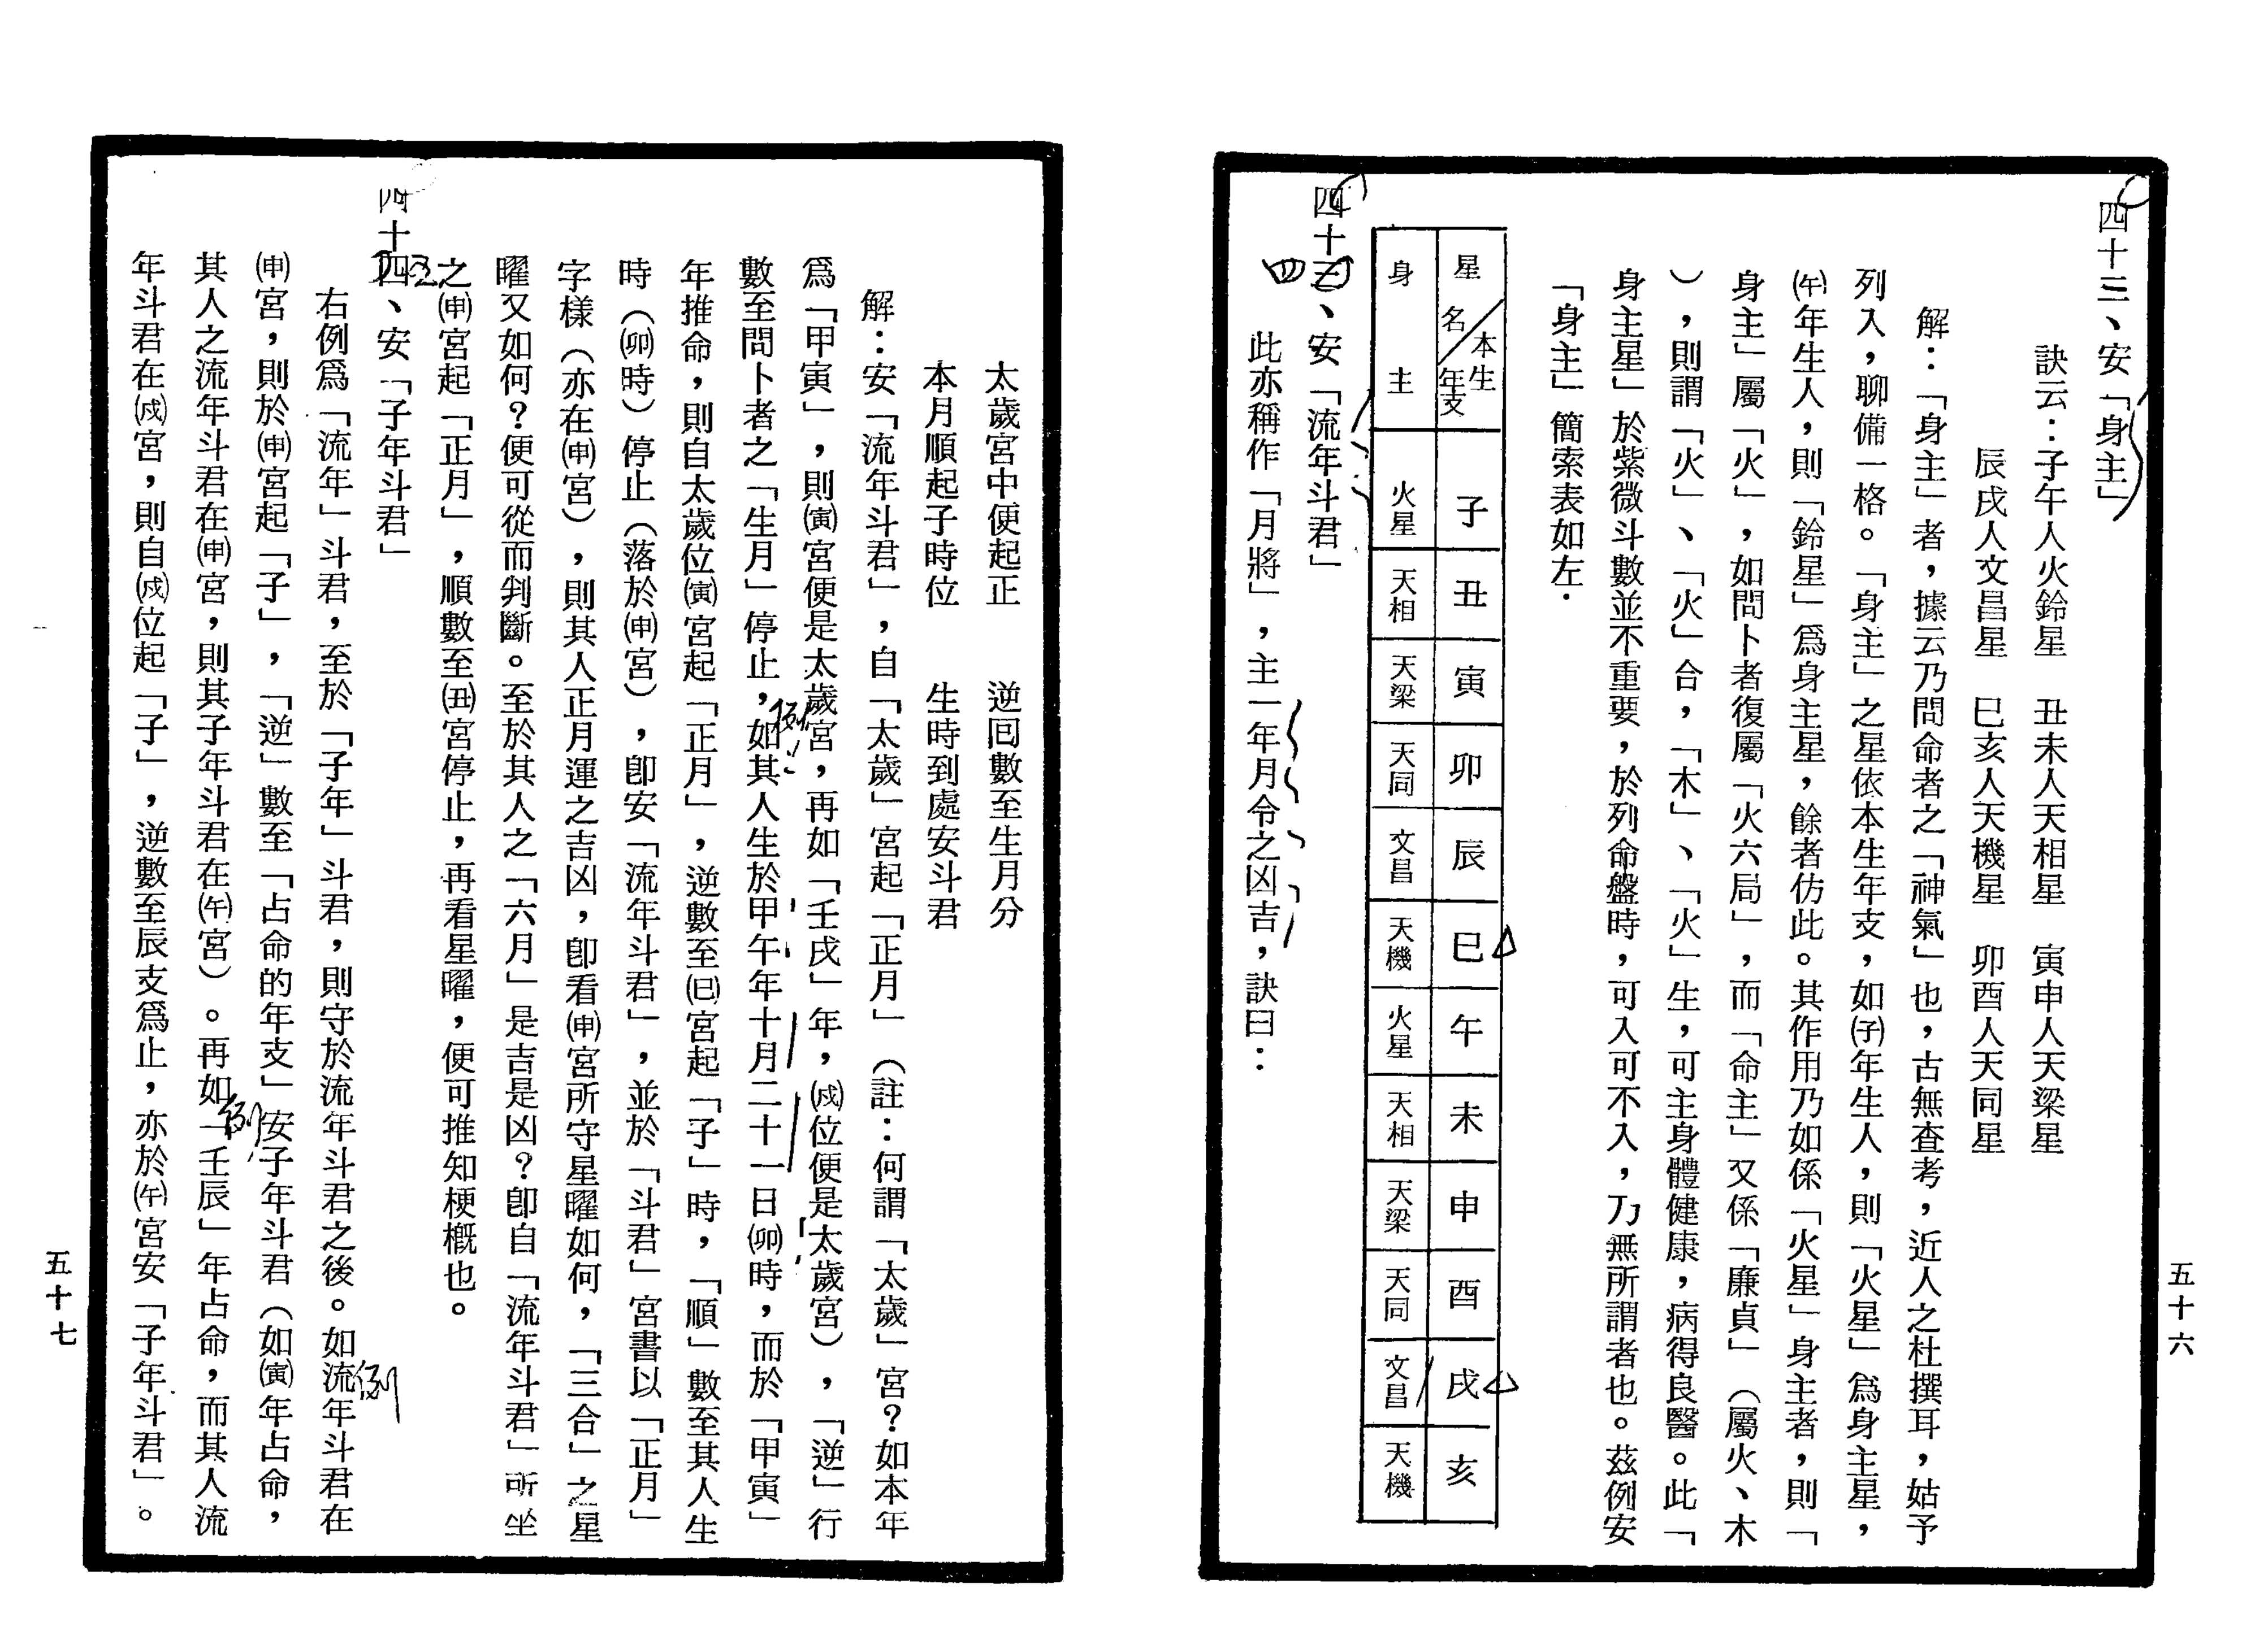 五十六
四十三、安「身主」
訣云：子午人火鈴星　丑未人天相星　寅申人天梁星
辰戌人文昌星　巳亥人天機星　卯酉人天同星
解：「身主」者，據云乃問命者之「神氣」也，古無查考，近人之杜撰耳，姑予
列入，聊備一格。「身主」之星依本生年支，如㈦年生人，則「火星」為身主星，
(午)年生人，則「鈴星」爲身主星，餘者仿此。其作用乃如係「火星」身主者，則「
身主」屬「火」，如問卜者復屬「火六局」，而「命主」又係「廉貞」（屬火、木
），則謂「火」、「火」合，「木」、「火」生，可主身體健康，病得良醫。此「
身主星」於紫微斗數並不重要，於列命盤時，可入可不入，乃無所謂者也。茲例安
「身主」簡索表如左．
星名／本生年支　子　丑　寅　卯　辰　巳　午　未　申　酉　戌　亥
身主　火星　天相　天梁　天同　文昌　天機　火星　天相　天梁　天同　文昌　天機
四十三、安「流年斗君」
四
此亦稱作「月將」，主一年月令之凶吉，訣曰：
太歲宮中便起正　逆回數至生月分
本月順起子時位　生時到處安斗君
解：安「流年斗君」，自「太歲」宮起「正月」（註：何謂「太歲」宮？如本年
爲「甲寅」，則(寅)宮便是太歲宮，再如「壬戌」年，(戌)位便是太歲宮），「逆」行
數至問卜者之「生月」停止，如其人生於甲午年十月二十一日(卯)時，而於「甲寅」
例
年推命，則自太歲位(寅)宮起「正月」，逆數至(巳)宮起「子」時，「順」數至其人生
時（(卯)時）停止（落於(申)宮），卽安「流年斗君」，並於「斗君」宮書以「正月」
字樣（亦在(申)宮），則其人正月運之吉凶，卽看(申)宮所守星曜如何，「三合」之星
曜又如何？便可從而判斷。至於其人之「六月」是吉是凶？卽自「流年斗君」所坐
之(申)宮起「正月」，順數至(丑)宮停止，再看星曜，便可推知梗概也。
四十四、安「子年斗君」
五
右例爲「流年」斗君，至於「子年」斗君，則守於流年斗君之後。如流年斗君在
例
(申)宮，則於(申)宮起「子」，「逆」數至「占命的年支」安子年斗君（如(寅)年占命，
其人之流年斗君在(申)宮，則其子年斗君在(午)宮）。再如「壬辰」年占命，而其人流
例
年斗君在(戌)宮，則自(戌)位起「子」，逆數至辰支爲止，亦於(午)宮安「子年斗君」。
五十七